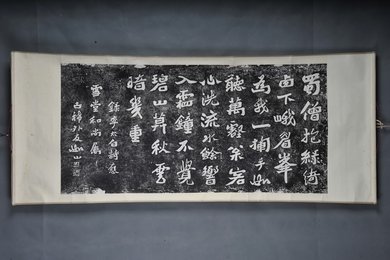 蜀僧抱綠綺
西下峨眉峯
為我一揮手如
聽萬壑松客
心洗流水餘響
入霜鐘不覺
碧山暮秋雲
暗幾重
錄李太白詩
雪堂和尚屬